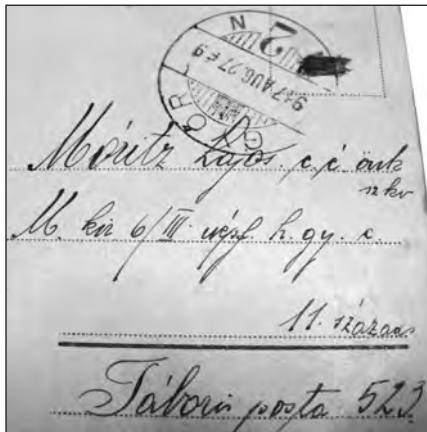 GYŐR 2
917 AUG. 27
Móritz Lajos. önk
szkv
M. kir 6/III. népf. h. gy. e.
11. század
Tábori posta 523